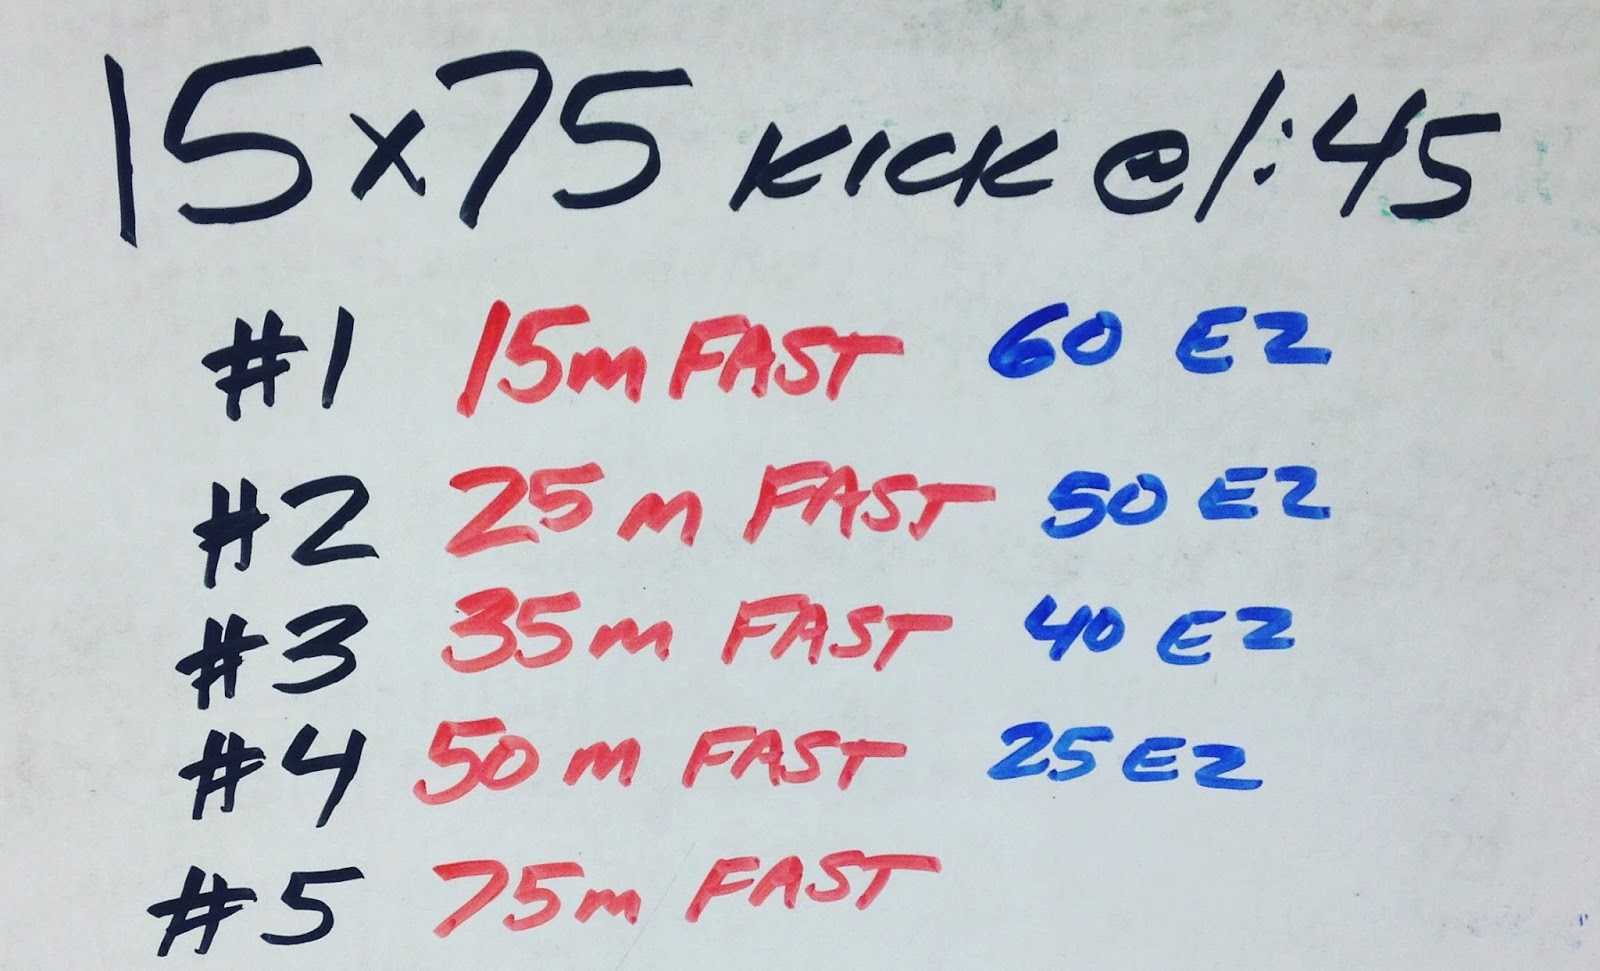 15x75 KICK @ 1:45
#1 15m FAST 60 EZ
#2 25m FAST 50 EZ
#3 35m FAST 40 EZ
#4 50m FAST 25 EZ
#5 75m FAST